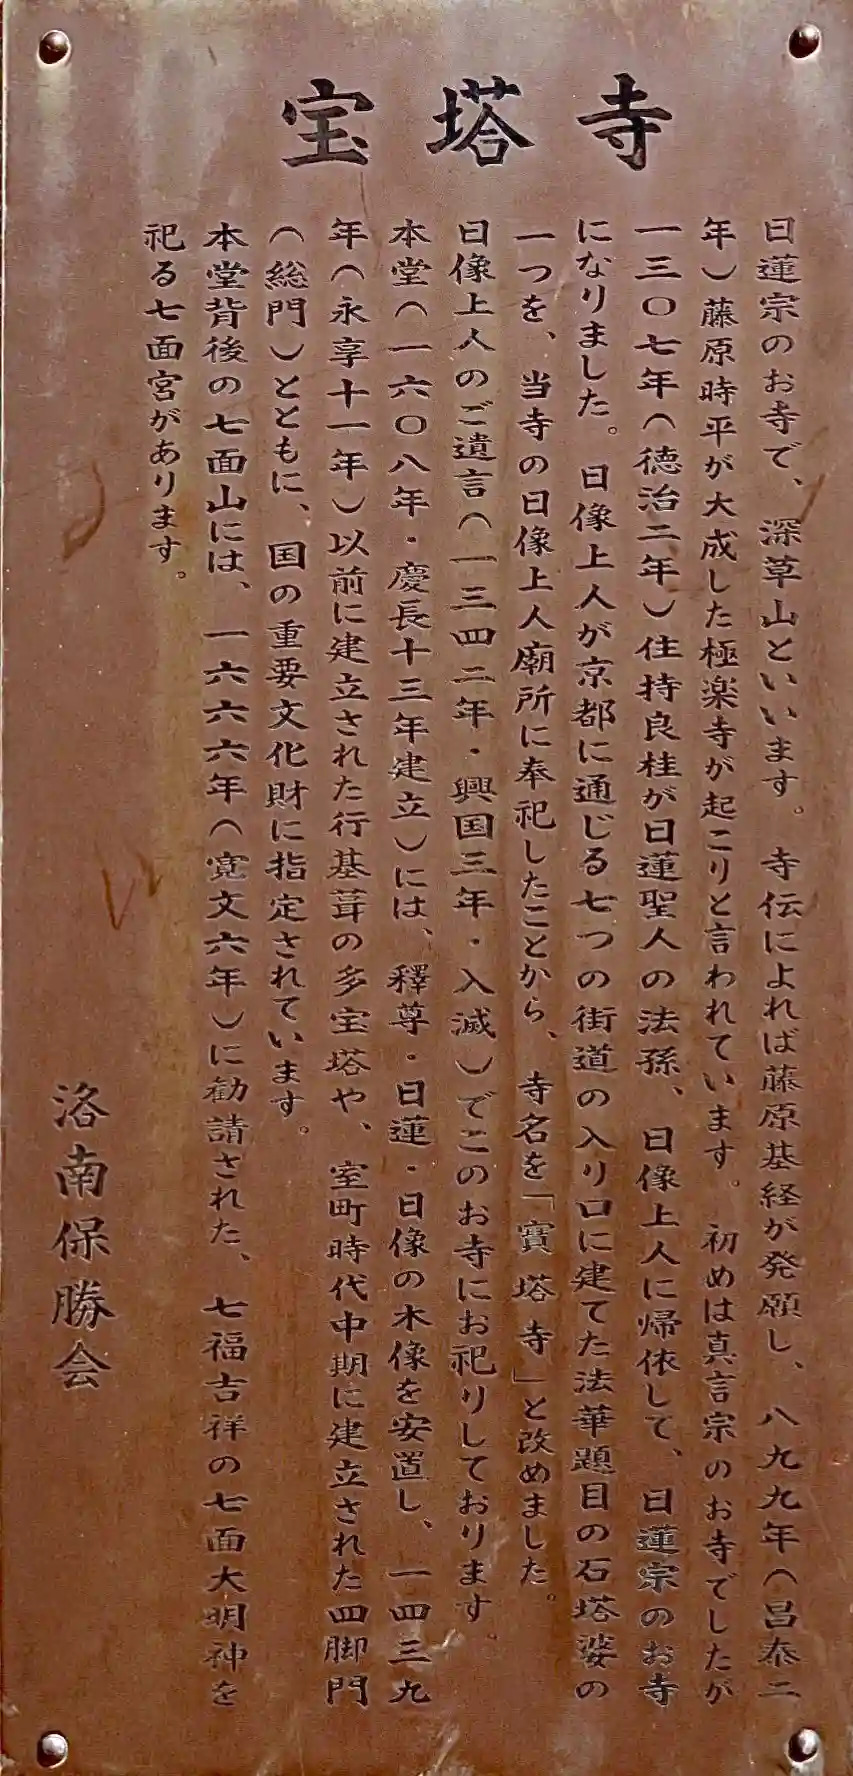 宝塔寺
日蓮宗のお寺で、深草山といいます。寺伝によれば藤原基経が発願し、八九九年(昌泰二
年)藤原時平が大成した極楽寺が起こりと言われています。初めは真言宗のお寺でしたが
一三〇七年(徳治二年)住持良桂が日蓮聖人の法孫、日像上人に帰依して、日蓮宗のお寺
になりました。日像上人が京都に通じる七つの街道の入り口に建てた法華題目の石塔婆の
一つを、当寺の日像上人廟所に奉祀したことから、寺名を「寳塔寺」と改めました。
日像上人のご遺言(一三四二年・興国三年・入滅)でこのお寺にお祀りしております。
本堂(一六〇八年・慶長十三年建立)には、釋尊・日蓮・日像の木像を安置し、一四三九
年(永享十一年)以前に建立された行基葺の多宝塔や、室町時代中期に建立された四脚門
(総門)とともに、国の重要文化財に指定されています。
本堂背後の七面山には、一六六六年(寛文六年)に勧請された、七福吉祥の七面大明神を
祀る七面宮があります。
洛南保勝会